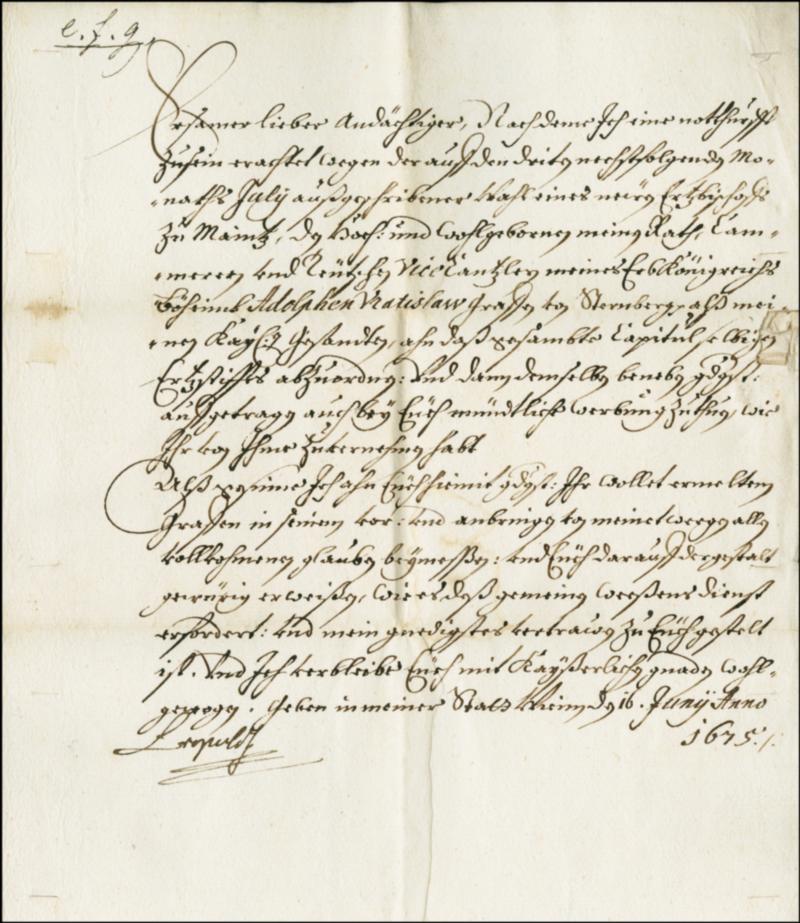 e. f. g.
Ersamer lieber Andächtiger, Nachdeme Ich eine notthurfft
zusein erachtet wegen der auff den dritten nechstfolgenden Mo-
naths July außgeschribener Wahl eines neüen Ertzbischoffs
zu Maintz, den Hoch: und Wohlgebornen meinen Rath, Cam-
merern und Teütschen ViceCantzler meines ErbKönigreichs
Böheimb Adolphen Vratislaw Graffen von Sternberg, alß mei-
nen Kays: Gesandten, ahn daß gesambte Capitul selbigen
Ertzstiffts abzuordnen: Und dann demselben beneben gdgst:
auffgetragen auch bey Euch mündtliche werbung zuthun, wie
Ihr von Ihme zuvernehmen habt
Alß gesinne Ich ahn Euch hiemit gdgst: Ihr wollet ermeltem
Graffen in seinem vor: und anbringen von meinetwegen allen
vollkohmenen glauben beymeßen: und Euch darauff dergestalt
gewürig erweißen, wie es daß gemeinen weeßens dienst
erfordert: und mein gnedigstes vertrawen zu Euch gestelt
ist. Und Ich verbleibe Euch mit Kayßerlichen gnaden wohl-
gewogen. Geben in meiner Statt Wien den 16. Junij Anno
1675./.
Leopold